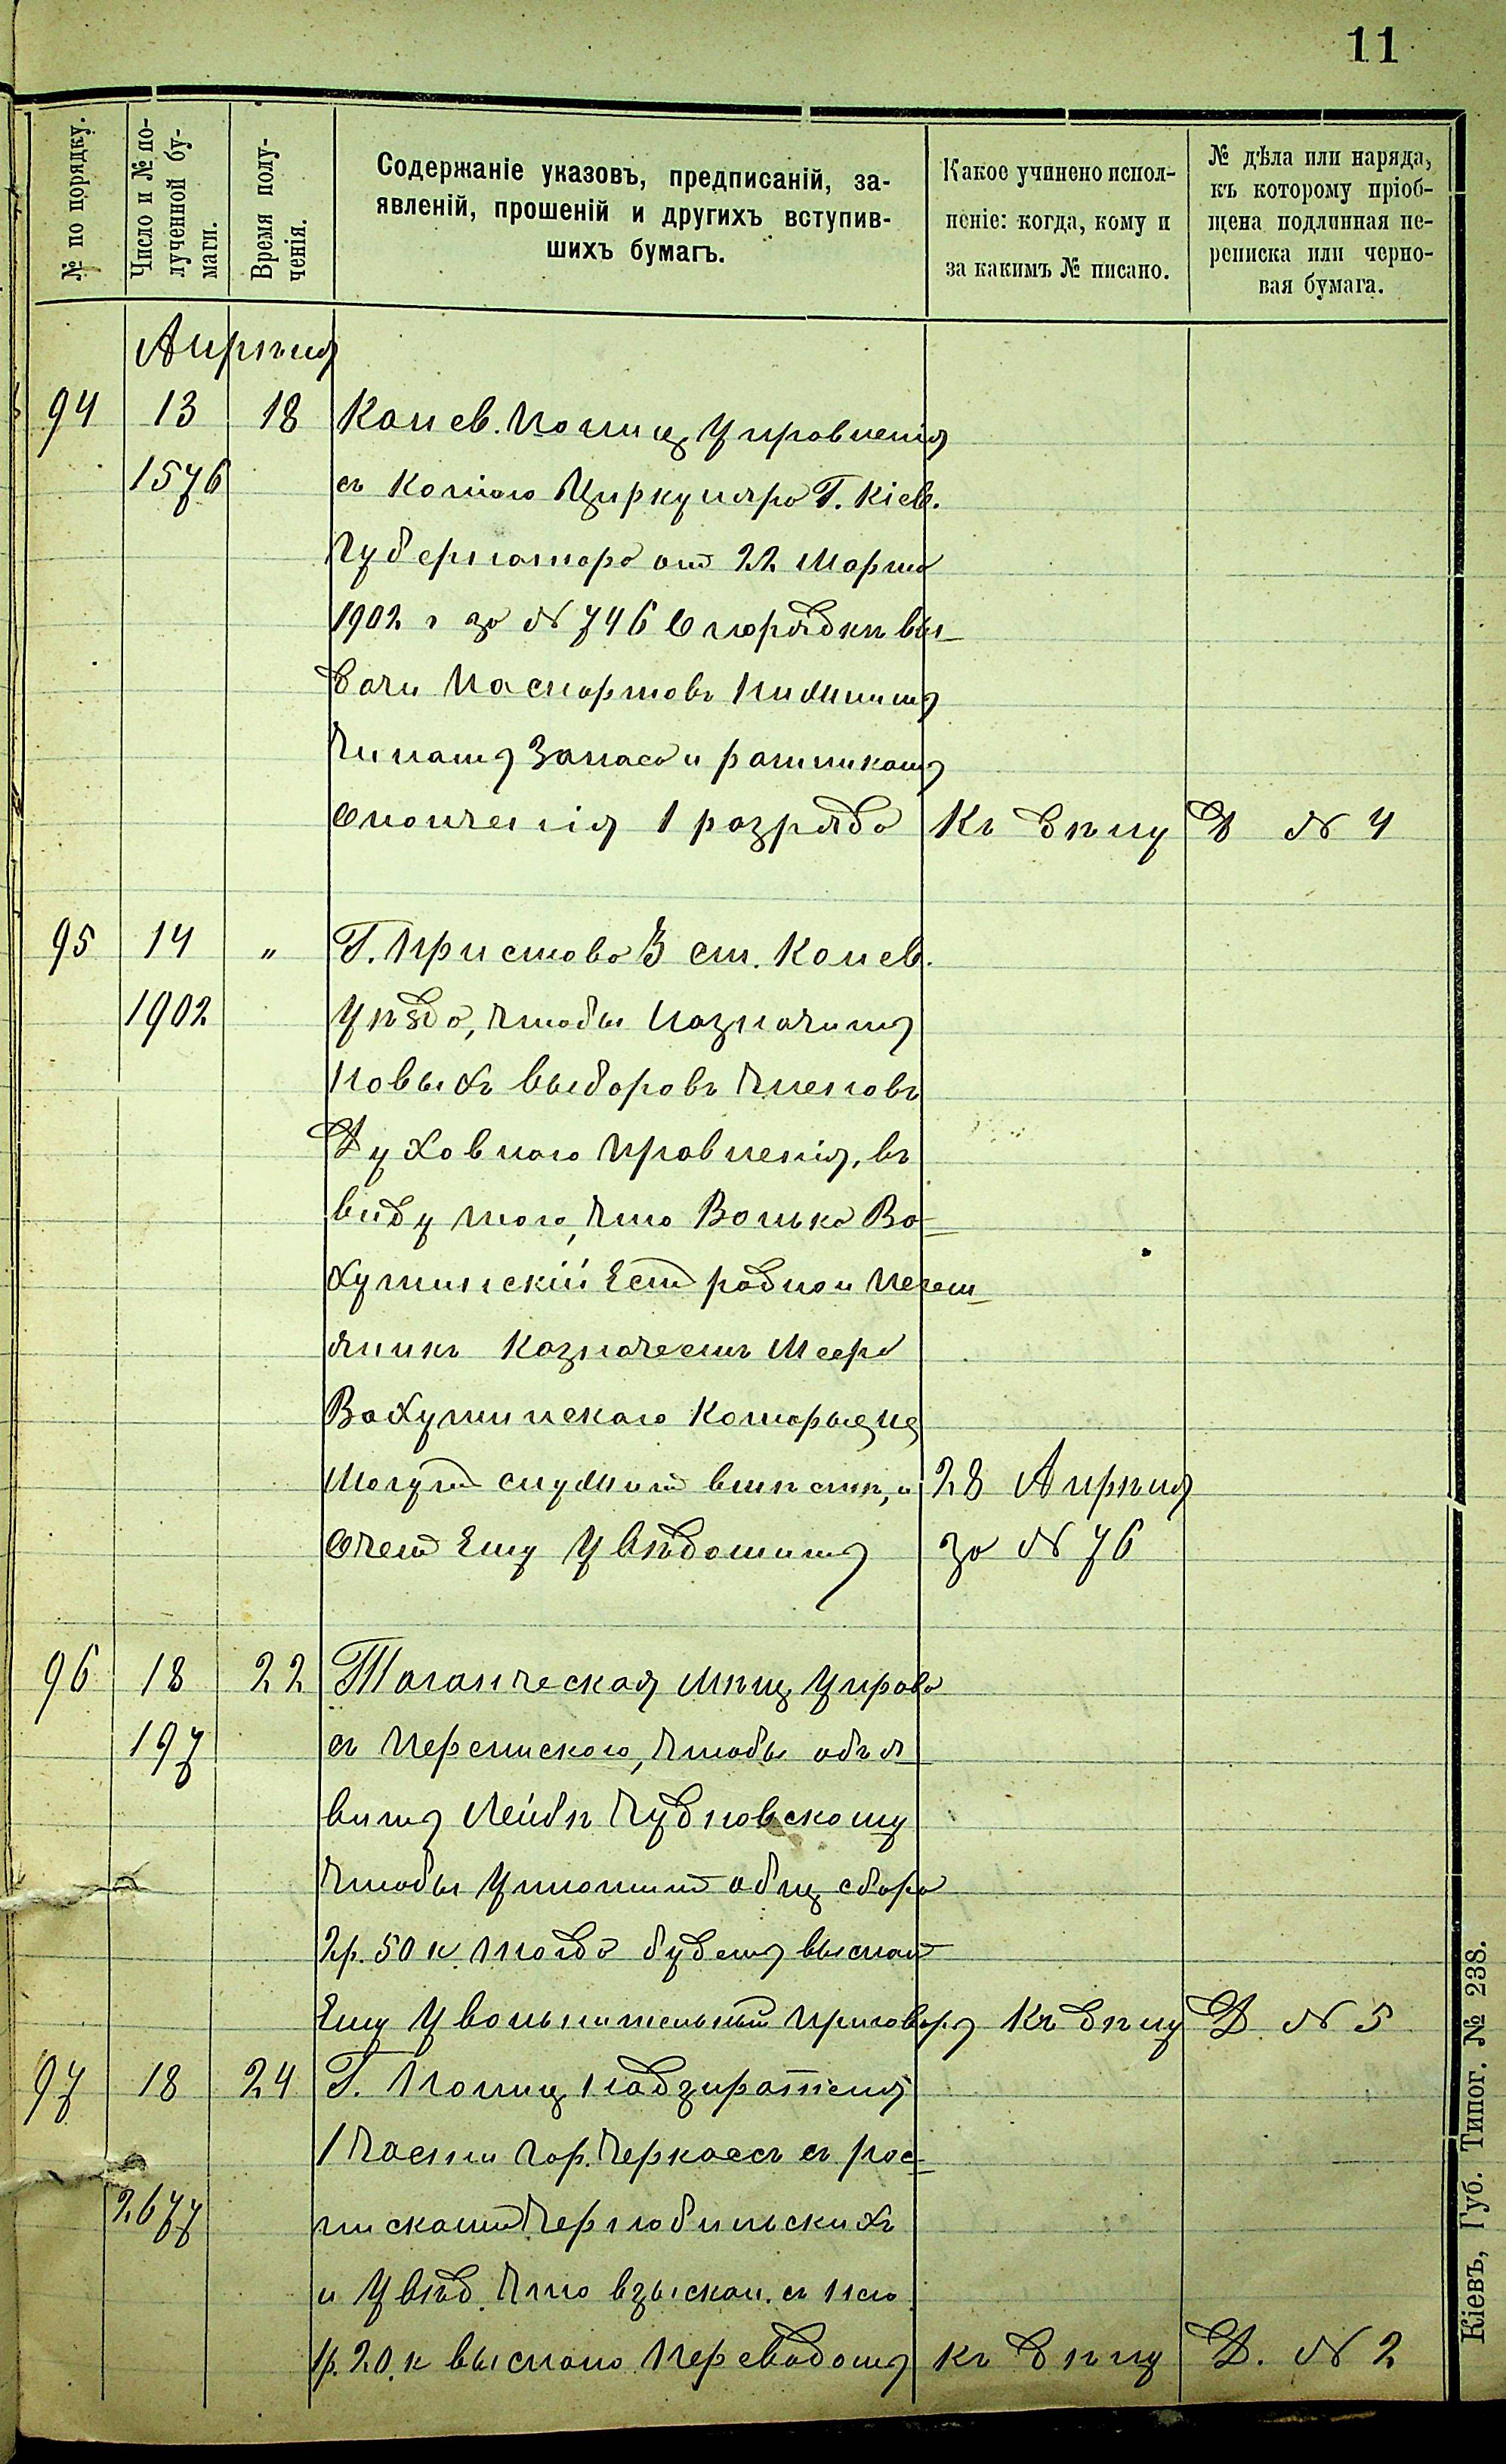 11
№ по порядку.
Число и № по-
лученной бу-
маги.
Время полу-
ченія.
Содержаніе указовъ, предписаній, за-
явленій, прошеній и другихъ вступив-
шихъ бумагъ.
Какое учинено испол-
неніе: когда, кому и
за какимъ № писано.
№ дѣла или наряда,
къ которому пріоб-
щена подлинная пе-
реписка или черно-
вая бумага.
Апрѣля
94 13 18 Канев. Полиц Управленія
1576 съ Копіаю Циркуляра Г. Кіев.
Губернатора от 22 Марта
1902 г за № 746 О порядкѣ вы-
дачи Паспортовъ Нижнимъ
Чинамъ Запаса и ратникамъ
Ополченія 1 разряда Къ дѣлу Д № 4
95 14 „ Г. Пристава 3 ст. Канев.
1902 Уѣзда, чтобы Назначить
Новыхъ выборовъ Членовъ
Духовнаго Правленія, въ
виду того, что Волько Ва-
хутинскій Ест радной Племя-
янникъ Казначеемъ Меера
Вахутинскаго Которые не
Могут служит вмѣстѣ, и 28 Апрѣля
Очем Ему Увѣдомить за № 76
96 18 22 Таганческая Мѣщ Управа
197 съ Перепискаю, чтобы объя
вить Лейбѣ Чудновскому
чтобы Уплотит общ сбора
2р. 50 к. тогда будетъ выслан
Ему Увольнительный приговоръ Къ дѣлу Д № 5
97 18 24 Г. Полиц надзирателя
1 Части гор. Черкассъ съ рос-
2677 пискаю Чернобильскихъ
и Увѣд. что взыскан. съ него
1р. 20 к выслано Переводомъ къ дѣлу Д. № 2
Кіевъ, Губ. Типог. № 238.